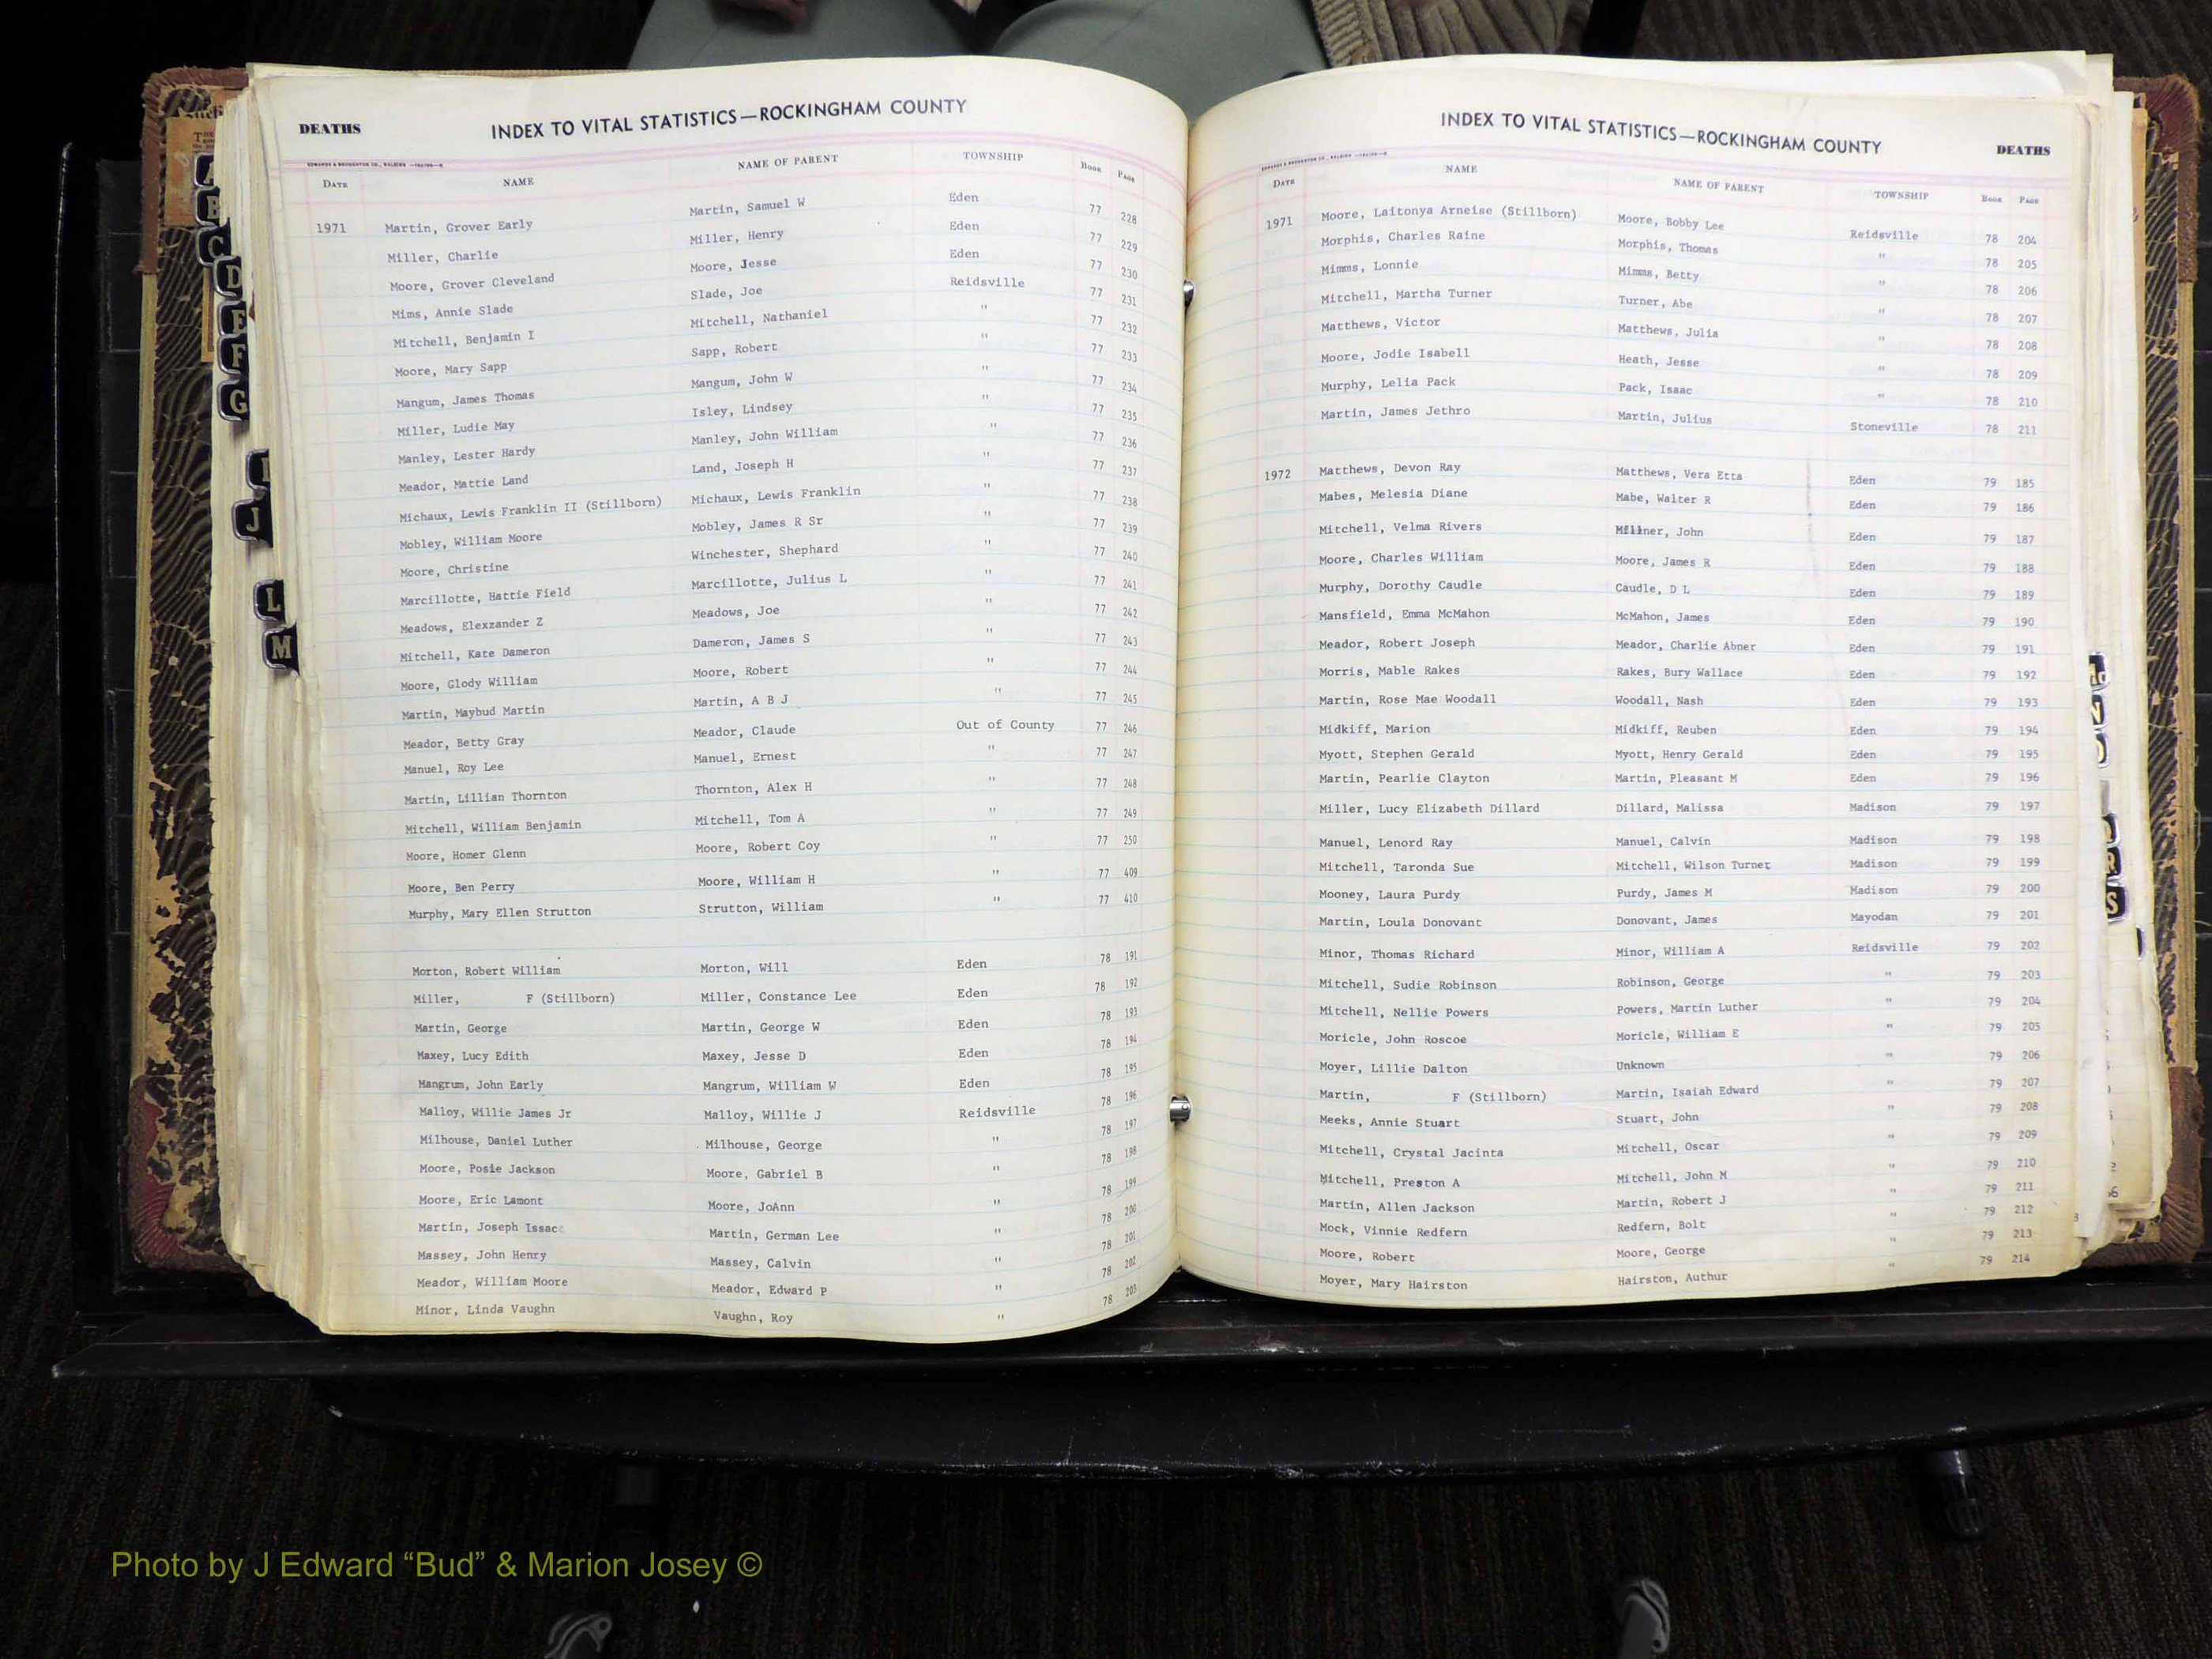 DEATHS INDEX TO VITAL STATISTICS—ROCKINGHAM COUNTY
DATE NAME NAME OF PARENT TOWNSHIP BOOK PAGE
1971 Martin, Grover Early Martin, Samuel W Eden 77 228
Miller, Charlie Miller, Henry Eden 77 229
Moore, Grover Cleveland Moore, Jesse Eden 77 230
Mims, Annie Slade Slade, Joe Reidsville 77 231
Mitchell, Benjamin I Mitchell, Nathaniel " 77 232
Moore, Mary Sapp Sapp, Robert " 77 233
Mangum, James Thomas Mangum, John W " 77 234
Miller, Ludie May Isley, Lindsey " 77 235
Manley, Lester Hardy Manley, John William " 77 236
Meador, Mattie Land Land, Joseph H " 77 237
Michaux, Lewis Franklin II (Stillborn) Michaux, Lewis Franklin " 77 238
Mobley, William Moore Mobley, James R Sr " 77 239
Moore, Christine Winchester, Shephard " 77 240
Marcillotte, Hattie Field Marcillotte, Julius L " 77 241
Meadows, Elexzander Z Meadows, Joe " 77 242
Mitchell, Kate Dameron Dameron, James S " 77 243
Moore, Glody William Moore, Robert " 77 244
Martin, Maybud Martin Martin, A B J " 77 245
Meador, Betty Gray Meador, Claude Out of County 77 246
Manuel, Roy Lee Manuel, Ernest " 77 247
Martin, Lillian Thornton Thornton, Alex H " 77 248
Mitchell, William Benjamin Mitchell, Tom A " 77 249
Moore, Homer Glenn Moore, Robert Coy " 77 250
Moore, Ben Perry Moore, William H " 77 409
Murphy, Mary Ellen Strutton Strutton, William " 77 410
Morton, Robert William Morton, Will Eden 78 191
Miller, F (Stillborn) Miller, Constance Lee Eden 78 192
Martin, George Martin, George W Eden 78 193
Maxey, Lucy Edith Maxey, Jesse D Eden 78 194
Mangrum, John Early Mangrum, William W Eden 78 195
Malloy, Willie James Jr Malloy, Willie J Reidsville 78 196
Milhouse, Daniel Luther Milhouse, George " 78 197
Moore, Posie Jackson Moore, Gabriel B " 78 198
Moore, Eric Lamont Moore, JoAnn " 78 199
Martin, Joseph Issac Martin, German Lee " 78 200
Massey, John Henry Massey, Calvin " 78 201
Meador, William Moore Meador, Edward P " 78 202
Minor, Linda Vaughn Vaughn, Roy " 78 203
INDEX TO VITAL STATISTICS—ROCKINGHAM COUNTY DEATHS
DATE NAME NAME OF PARENT TOWNSHIP BOOK PAGE
1971 Moore, Laitonya Arneise (Stillborn) Moore, Bobby Lee Reidsville 78 204
Morphis, Charles Raine Morphis, Thomas " 78 205
Mimms, Lonnie Mimms, Betty " 78 206
Mitchell, Martha Turner Turner, Abe " 78 207
Matthews, Victor Matthews, Julia " 78 208
Moore, Jodie Isabell Heath, Jesse " 78 209
Murphy, Lelia Pack Pack, Isaac " 78 210
Martin, James Jethro Martin, Julius Stoneville 78 211
1972 Matthews, Devon Ray Matthews, Vera Etta Eden 79 185
Mabes, Melesia Diane Mabe, Walter R Eden 79 186
Mitchell, Velma Rivers Millner, John Eden 79 187
Moore, Charles William Moore, James R Eden 79 188
Murphy, Dorothy Caudle Caudle, D L Eden 79 189
Mansfield, Emma McMahon McMahon, James Eden 79 190
Meador, Robert Joseph Meador, Charlie Abner Eden 79 191
Morris, Mable Rakes Rakes, Bury Wallace Eden 79 192
Martin, Rose Mae Woodall Woodall, Nash Eden 79 193
Midkiff, Marion Midkiff, Reuben Eden 79 194
Myott, Stephen Gerald Myott, Henry Gerald Eden 79 195
Martin, Pearlie Clayton Martin, Pleasant M Eden 79 196
Miller, Lucy Elizabeth Dillard Dillard, Malissa Madison 79 197
Manuel, Lenord Ray Manuel, Calvin Madison 79 198
Mitchell, Taronda Sue Mitchell, Wilson Turner Madison 79 199
Mooney, Laura Purdy Purdy, James M Madison 79 200
Martin, Loula Donovant Donovant, James Mayodan 79 201
Minor, Thomas Richard Minor, William A Reidsville 79 202
Mitchell, Sudie Robinson Robinson, George " 79 203
Mitchell, Nellie Powers Powers, Martin Luther " 79 204
Moricle, John Roscoe Moricle, William E " 79 205
Moyer, Lillie Dalton Unknown " 79 206
Martin, F (Stillborn) Martin, Isaiah Edward " 79 207
Meeks, Annie Stuart Stuart, John " 79 208
Mitchell, Crystal Jacinta Mitchell, Oscar " 79 209
Mitchell, Preston A Mitchell, John M " 79 210
Martin, Allen Jackson Martin, Robert J " 79 211
Mock, Vinnie Redfern Redfern, Bolt " 79 212
Moore, Robert Moore, George " 79 213
Moyer, Mary Hairston Hairston, Authur " 79 214
A
B
C
D
E
F
G
I
J
L
M
R
S
Photo by J Edward “Bud” & Marion Josey ©